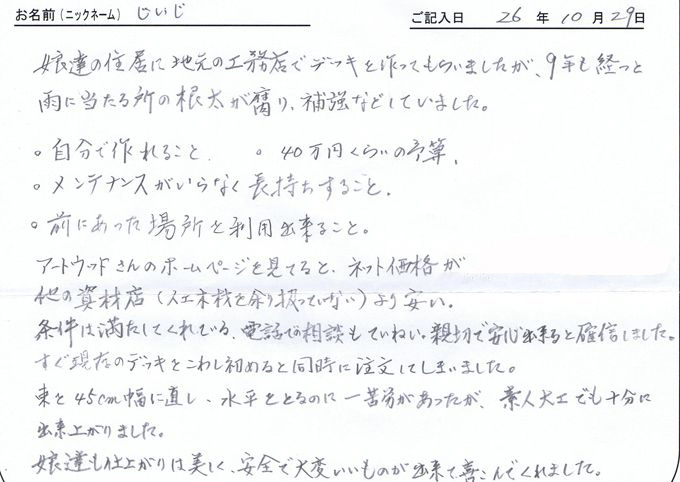 お名前（ニックネーム） じいじ ご記入日 26 年 10 月 29 日
娘達の住居に地元の工務店でデッキを作ってもらいましたが、9年も経つと
雨に当たる所の根太が腐り、補強などしていました。
。自分で作れること。 。40万円くらいの予算。
。メンテナンスがいらなく長持ちすること。
。前にあった場所を利用出来ること。
アートウッドさんのホームページを見てると、ネット価格が
他の資材店（人工木材を余り扱っていない）より安い。
条件は満たしてくれている、電話での相談もていねい。親切で安心出来ると確信しました。
すぐ現在のデッキをこわし初めると同時に注文してしまいました。
束を45cm幅に直し、水平をとるのに一苦労があったが、素人大工でも十分に
出来上がりました。
娘達も仕上がりは美しく、安全で大変いいものが出来て喜こんでくれました。